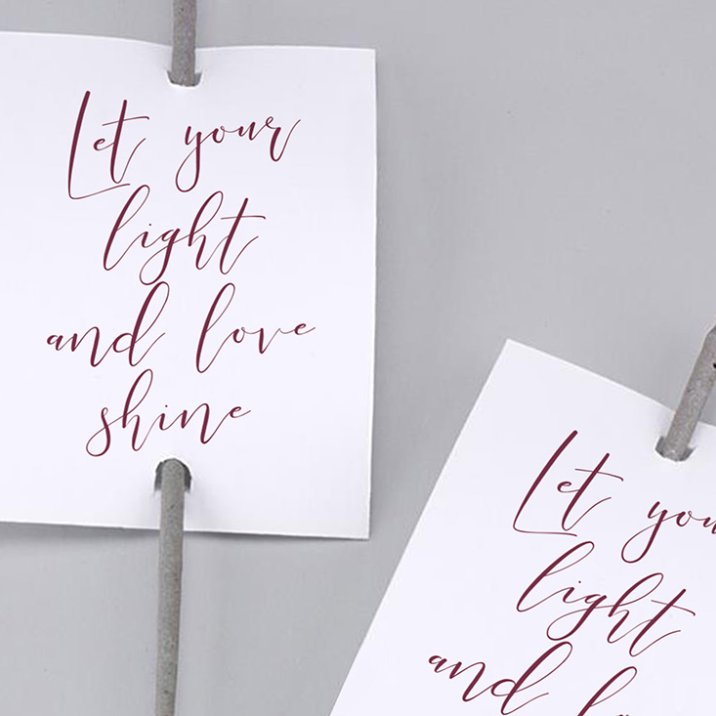 Let your
light
and love
shine
Let you
light
and